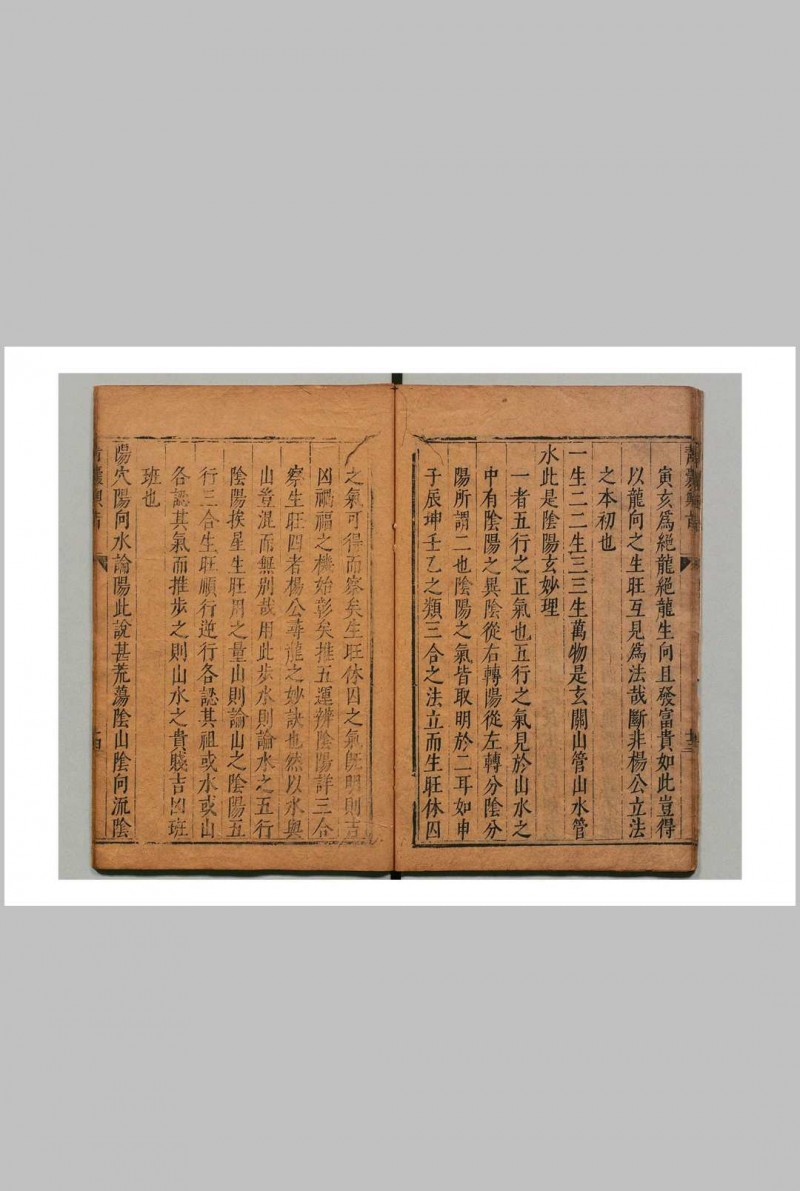 寅亥爲絕龍絕龍生向且發富貴如此豈得
以龍向之生旺互見爲法哉斷非楊公立法
之本初也
一生二二生三三生萬物是玄關山管山水管
水此是陰陽玄妙理
一者五行之正氣也五行之氣見於山水之
中有陰陽之異陰從右轉陽從左轉分陰分
陽所謂二也陰陽之氣皆取明於二耳如申
子辰坤壬乙之類三合之法立而生旺休囚
之氣可得而察矣生旺休囚之氣旣明則吉
凶禍福之機始彰矣推五運辨陰陽詳三合
察生旺四者楊公尋龍之妙訣也然以水與
山豈混而無別哉用此步水則論水之五行
陰陽挨星生旺用之量山則論山之陰陽五
行三合生旺順行逆行各認其祖或水或山
各認其氣而推步之則山水之貴賤吉凶班
班也
陽穴陽向水論陽此說甚荒蕩陰山陰向流陰